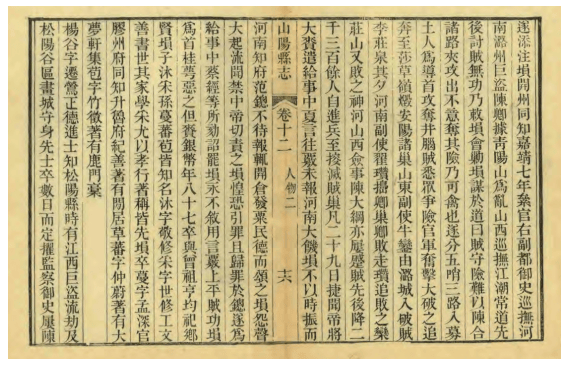 逐添注塤開州同知嘉靖七年纍官右副都御史巡撫河
南潞州巨盜陳卿據靑陽山爲亂山西巡撫江潮常道先
後討賊無功乃敕塤會勦塤謀於道曰賊守險難以陳合
諸路夾攻出不意奪其險乃可禽也遂分五哨三路入募
土人爲導首攻奪井腦賊悉眾爭險官軍奮擊大破之追
奔至莎草嶺燬安陽諸巢山東副使牛鸞由潞城入破賊
李莊泉其夕河南副使翟瓚搗卿巢卿敗走瓚追敗之欒
莊山又敗之神河山西僉事陳大綱亦屢蹙賊先後降二
千三百餘人自進兵至按滅賊巢凡二十九日捷聞帝將
大賚遣給事中夏言往覈未報河南大饑塤不以時振而
山陽縣志 卷十二 人物二 十六
河南知府范鏓不待報輒開倉發粟民德而頌之塤怨聲
大起流聞禁中帝切責之塤惶恐引罪且歸罪於鏓遂爲
給事中蔡經等所劾詔罷塤永不敘用言覈上平賊功塤
爲首桂萼惡之但賚銀幣年八十七卒與曾祖亨均祀鄉
賢塤子沐宋孫蔓蕃苞皆知名沐字敬修宋字世修工文
善書世其家學宋尤以孝行著稱皆先塤卒蔓字孟深官
膠州府同知升魯府紀善著有閒居草蕃字仲蔚著有大
夢軒集苞字竹徵著有鹿門稾
楊谷字遷鶯正德進士知松陽縣時有江西巨盜流劫及
松陽谷區畫城守身先士卒數日而定擢監察御史屢陳